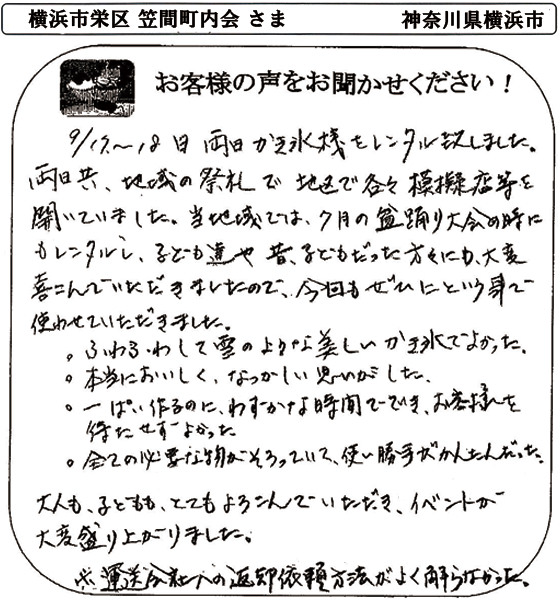 横浜市栄区 笠間町内会 さま
神奈川県横浜市
お客様の声をお聞かせください！
9/17～18日 両日かき氷機をレンタル致しました。
両日共、地域の祭礼で地区で各々模擬店等を
開いていました。当地域では、7月の盆踊り大会の時に
もレンタルし、子ども達や昔、子どもだった方々にも、大変
喜こんでいただきましたので、今回もぜひにという事で
使わせていただきました。
。ふわふわして雪のような美しいかき氷でよかった。
。本当においしく、なつかしい思いがした。
。一ぱい作るのに、わずかな時間でで­き、お客様を
待たせずよかった
。全ての必要な物がそろっていて、使い勝手がかんたんだった。
大人も、子どもも、とてもよろこんでいただき、イベントが
大変盛り上がりました。
※運送会社への返却依頼方法がよく解らなかった。